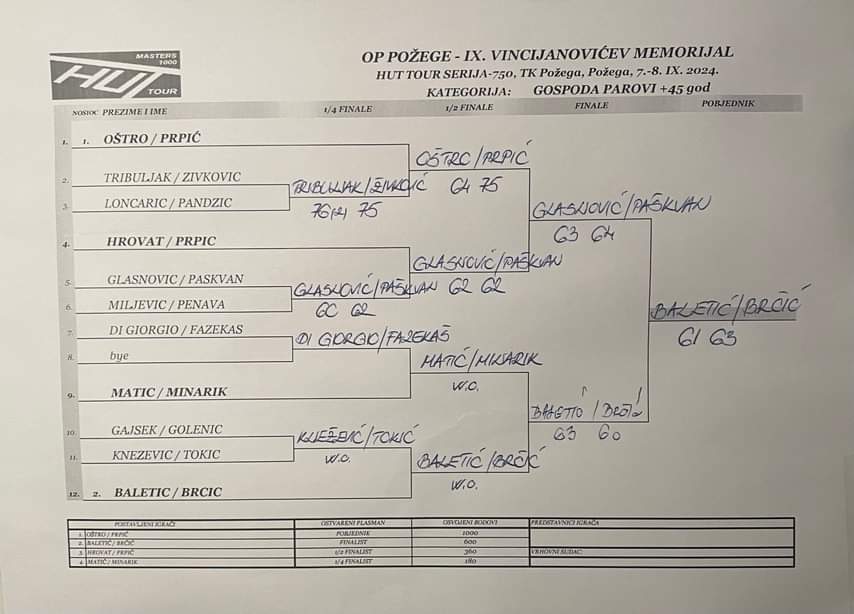 MASTERS
1000
HUT
TOUR
OP POŽEGE - IX. VINCIJANOVIĆEV MEMORIJAL
HUT TOUR SERIJA-750, TK Požega, Požega, 7.-8. IX. 2024.
KATEGORIJA: GOSPODA PAROVI +45 god
NOSIOC PREZIME I IME 1/4 FINALE 1/2 FINALE FINALE POBJEDNIK
1. 1. OŠTRO / PRPIĆ
OŠTRO/PRPIĆ
2. TRIBULJAK / ZIVKOVIC
TRIBULJAK/ŽIVKOVIĆ 64 75
3. LONCARIC / PANDZIC
76(2) 75
GLASNOVIĆ/PAŠKVAN
63 64
4. HROVAT / PRPIC
GLASNOVIĆ/PAŠKVAN
5. GLASNOVIC / PASKVAN
GLASNOVIĆ/PAŠKVAN 62 62
6. MILJEVIC / PENAVA
60 62
BALETIĆ/BRČIĆ
7. DI GIORGIO / FAZEKAS
DI GIORGIO/FAZEKAŠ
61 63
8. bye
MATIĆ/MINARIK
W.O.
9. MATIC / MINARIK
BALETIĆ/BRČIĆ
10. GAJSEK / GOLENIC
KNEŽEVIĆ/TOKIĆ
63 60
11. KNEZEVIC / TOKIC
W.O.
BALETIĆ/BRČIĆ
W.O.
12. 2. BALETIC / BRCIC
POSTAVLJENI IGRAČI OSTVARENI PLASMAN OSVOJENI BODOVI PREDSTAVNICI IGRAČA
1. OŠTRO / PRPIĆ POBJEDNIK 1000
2. BALETIĆ / BRČIĆ FINALIST 600
3. HROVAT / PRPIĆ 1/2 FINALIST 360 VRHOVNI SUDAC:
4. MATIĆ / MINARIK 1/4 FINALIST 180